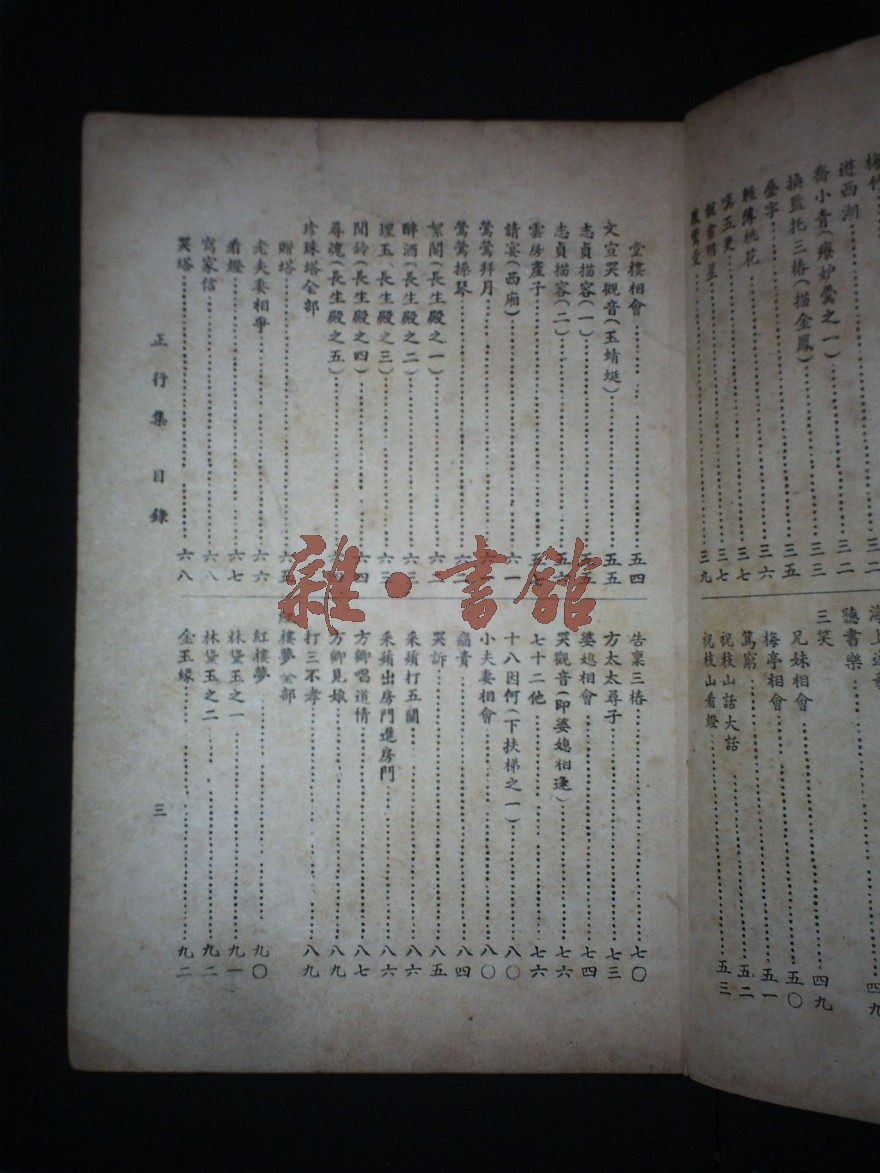 梅竹
遊西湖……三二
喬小青(療妒羹之一)……三三
換監托三樁(描金鳳)……三五
叠字……三六
輕薄桃花……三七
嘆五更……三七
說書明星……三九
海上
聽書樂……四九
三笑
兄妹相會……五〇
梅亭相會……五一
罵窮……五二
祝枝山話大話……五三
祝枝山看燈
堂樓相會……五四
文宣哭觀音(玉蜻蜓)……五五
志貞描容(一)……五五
志貞描容(二)……五六
雲房產子……五七
請宴(西廂)……六一
鶯鶯拜月
鶯鶯操琴……六二
絮閣(長生殿之一)……六三
醉酒(長生殿之二)……六三
埋玉(長生殿之三)……六三
聞鈴(長生殿之四)……六四
尋魂(長生殿之五)……六四
珍珠塔全部
贈塔……六五
老夫妻相爭……六六
看燈……六七
寫家信……六八
哭塔……六八
告稟三樁……七〇
方太太尋子……七三
婆媳相會……七四
哭觀音(即婆媳相逢)……七六
七十二他……七六
十八因何(下扶梯之一)……八〇
小夫妻相會……八〇
痛責……八四
哭訴……八五
采蘋打五關……八六
采蘋出房門進房門……八六
方卿唱道情……八七
方卿見娘……八九
打三不孝……八九
紅樓夢全部
紅樓夢……九〇
林黛玉之一……九一
林黛玉之二……九二
金玉緣……九二
正行集 目錄
三
雜·書館